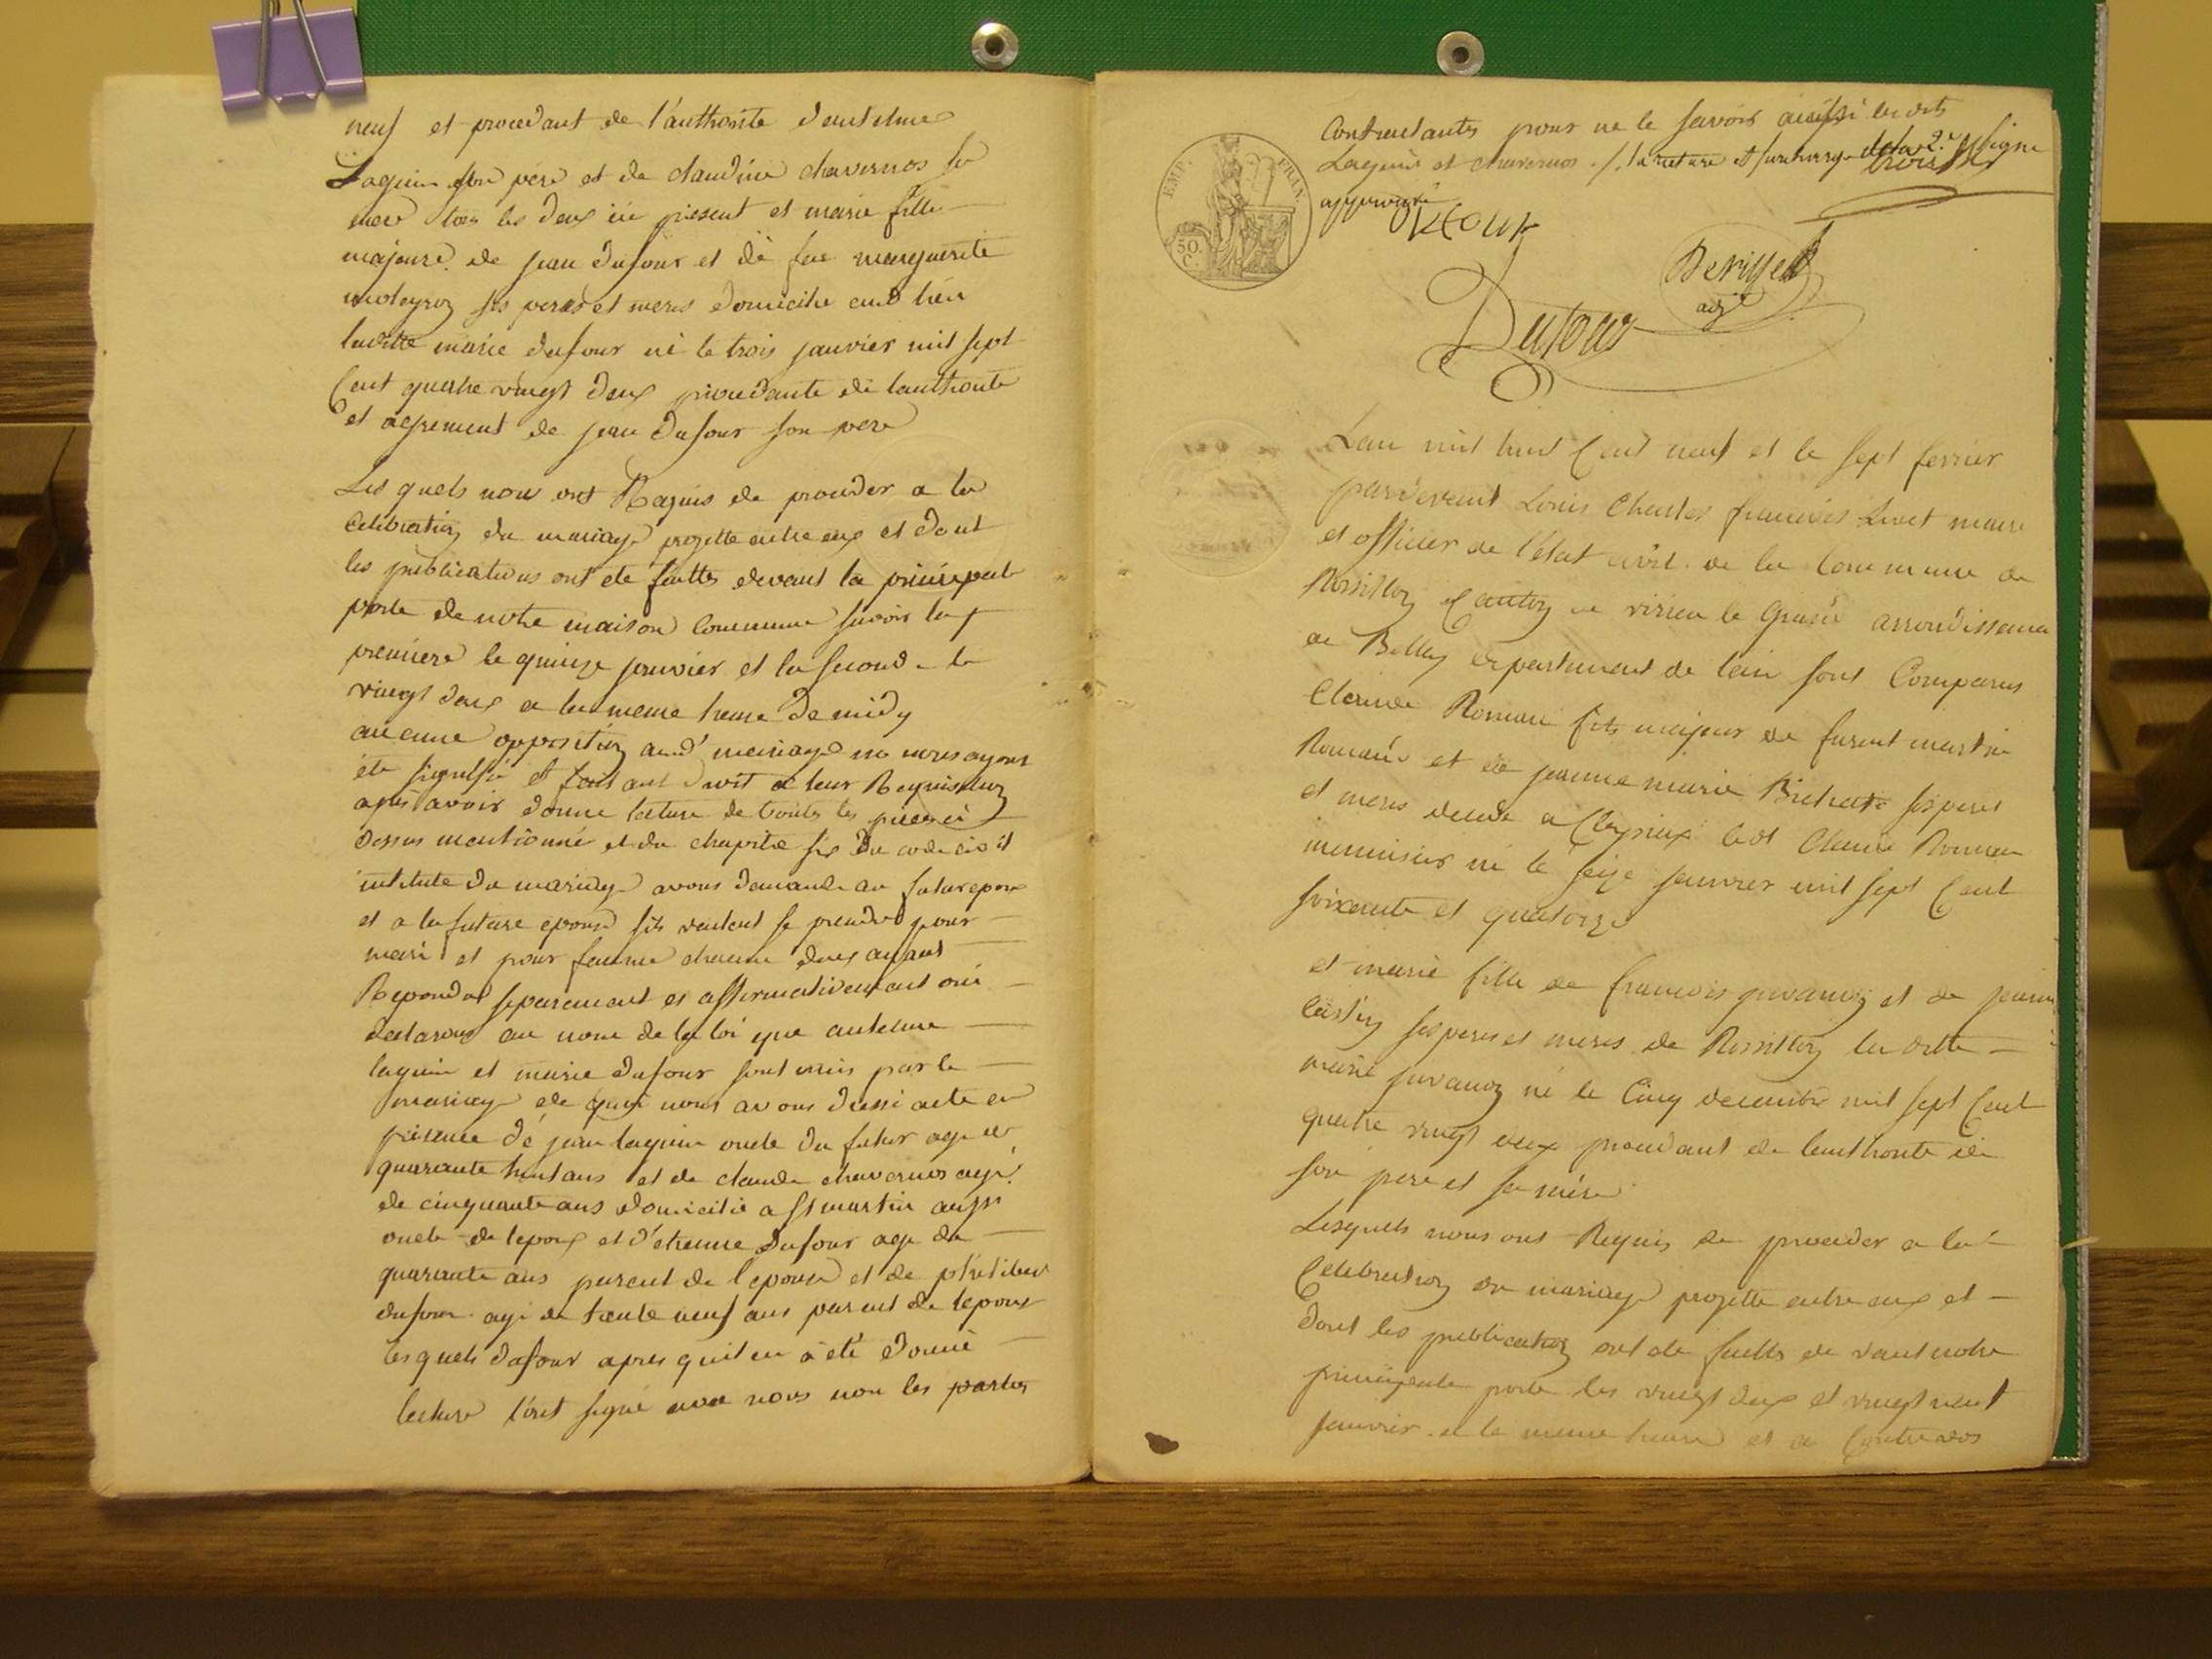 neuf et procedant de l'authorite d'anthelme
Laguin son pere et de claudine chavernos sa
mere tous les deux ici present et marie fille
majeure de jean Dufour et de fue marguerite
moleyroz ses peres et meres domicilie aud lieu
laditte marie dufour né le trois janvier mil sept
Cent quatre vingt deux procedante de lauthorite
et agrement de jean Dufour son pere
Les quels nous ont Requis de proceder a la
Celebration du mariage projette entre eux et dont
les publications ont ete faittes devant la principale
porte de notre maison Commune savoir la
premiere le quinze janvier et la seconde le
vingt deux a la meme heure de midy
aucune opposition aud' mariage ne nous ayant
été signifié et faisant droit a leur Requisition
apres avoir donne lecture de toutes les pieces ci
dessus mentionné et du chapitre six du code civil
intitule du mariage avons demande au futur epoux
et a la future epouse sils veulent se prendre pour
mari et pour femme chacun deux ayant
Repondu separement et affirmativement oui
declarons au nom de la loi que anthelme
laguin et marie dufour sont unis par le
mariage de quoi nous avons dressé acte en
presence de jean laguin oncle du futur age de
quarante huit ans et de claude chavernos agé
de cinquante ans domicilié a st martin aussi
oncle de lepoux et d'etienne Dufour age de
quarante ans parent de l'epouse et de philibert
dufour agé de trente neuf ans parent de lepouse
lesquels dufour apres quil en a été donné
lecture l'ont signé avec nous non les parties
Contractantes pour ne le savoir ainsi les dits
Laguin et chavernos ./. la rature et surcharge de la 2.e signe
approuvé
DUFOUR
Derisyel
adj
Dufour
EMP. FRAN.
50.
C.
Lan mil huit Cent neuf et le sept fevrier
pardevant Louis Charles francois Livet maire
et officier de l'état civil de la Commune de
Rossillon Canton de virieu le Grand arrondissement
de Belley departement de lain sont Comparus
Claude Romain fils majeur de furent martin
Romain et de jeanne marie Bichat ses peres
et meres decede a Cleyzieu led Claude Romain
menuisier né le seize janvier mil sept Cent
soixante et quatorze
et marie fille de francois juvanon et de jeanne
Castin ses peres et meres de Rossillon la ditte
marie juvanon né le Cinq decembre mil sept Cent
quatre vingt deux procedant de lauthorite de
son pere et sa mére
Lesquels nous ont Requis de proceder a la
Celebration du mariage projette entre eux et
dont les publication ont ete faittes devant notre
principale porte les vingt deux et vingt neuf
janvier a la meme heure et a